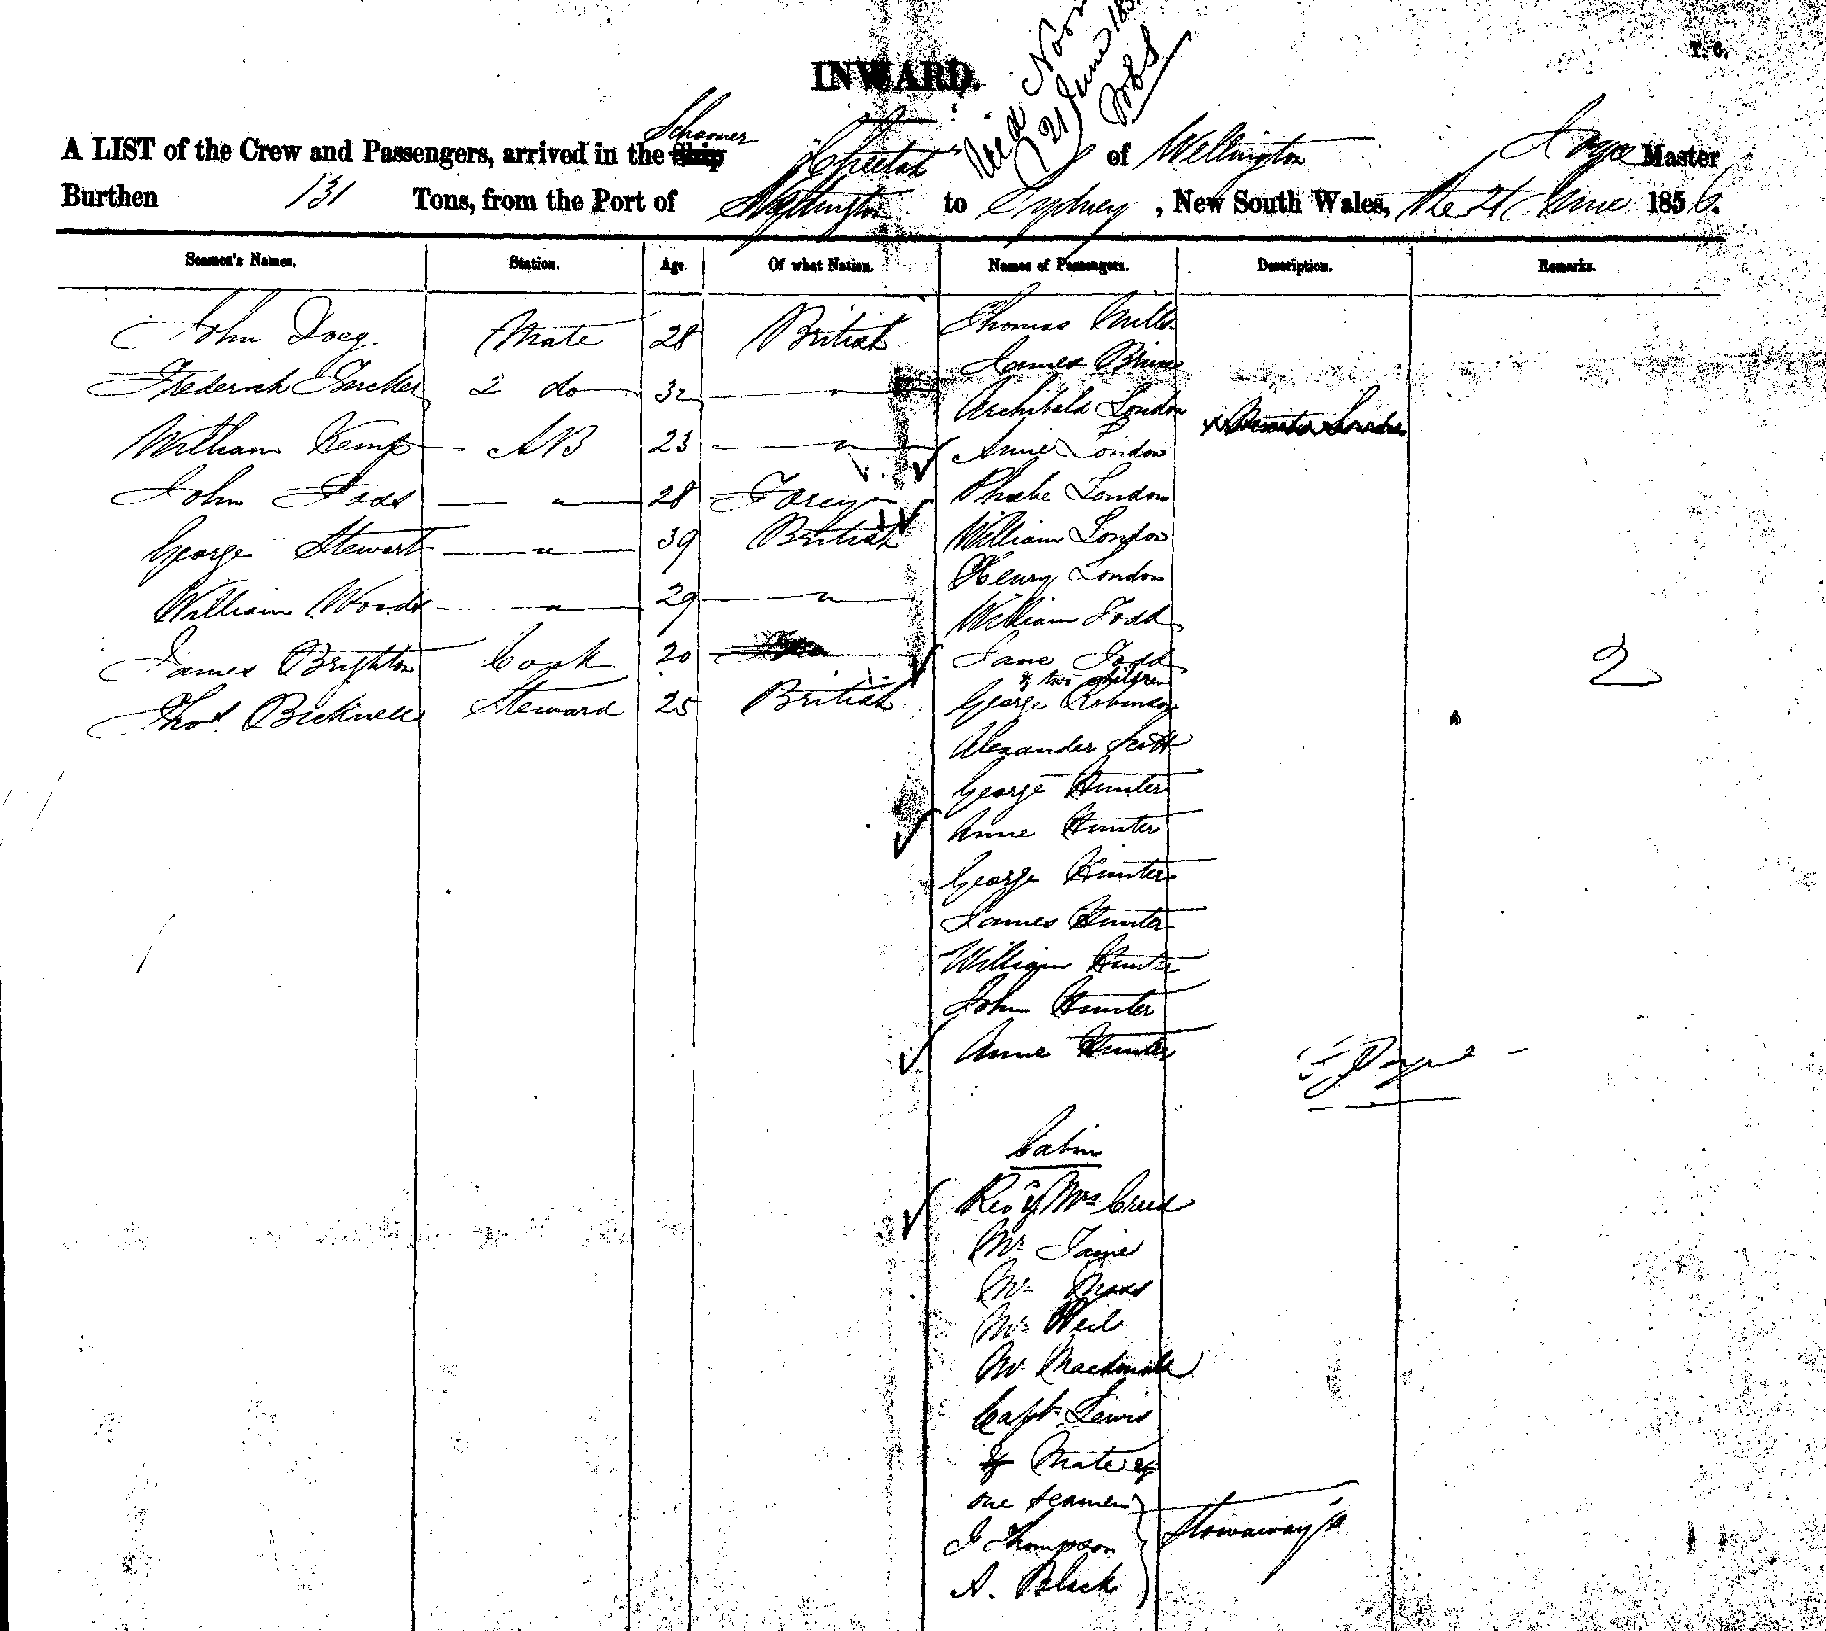 INWARD.
T. G.
21 June
A LIST of the Crew and Passengers, arrived in the Ship Schooner Cheetah of Wellington Master
Burthen 131 Tons, from the Port of Wellington to Sydney, New South Wales, the 21 June 1856.
Seamen's Names. Station. Age. Of what Nation. Names of Passengers. Description. Remarks.
John Doeg Mate 28 British Thomas Mills
James
Frederick 2 do 32 " Archibald London
William Kemp AB 23 " Anne London
John " 28 Foreign Phoebe London
George Stewart " 39 British William London
Henry London
William Woods " 29 " William Todd
James Brighton Cook 20 Jane Todd
& two children 2
Thos. Bicknell Steward 25 British George Robinson
Alexander Scott
George Hunter
Anne Hunter
George Hunter
James Hunter
William Hunter
John Hunter
Anne Hunter
Cabin
Revd & Mrs Creed
Mr
Mr
Mr Weil
Mr Macdonald
Capt. Lewis
& Mate &
one seamen
J Thompson Stowaway's
A. Black